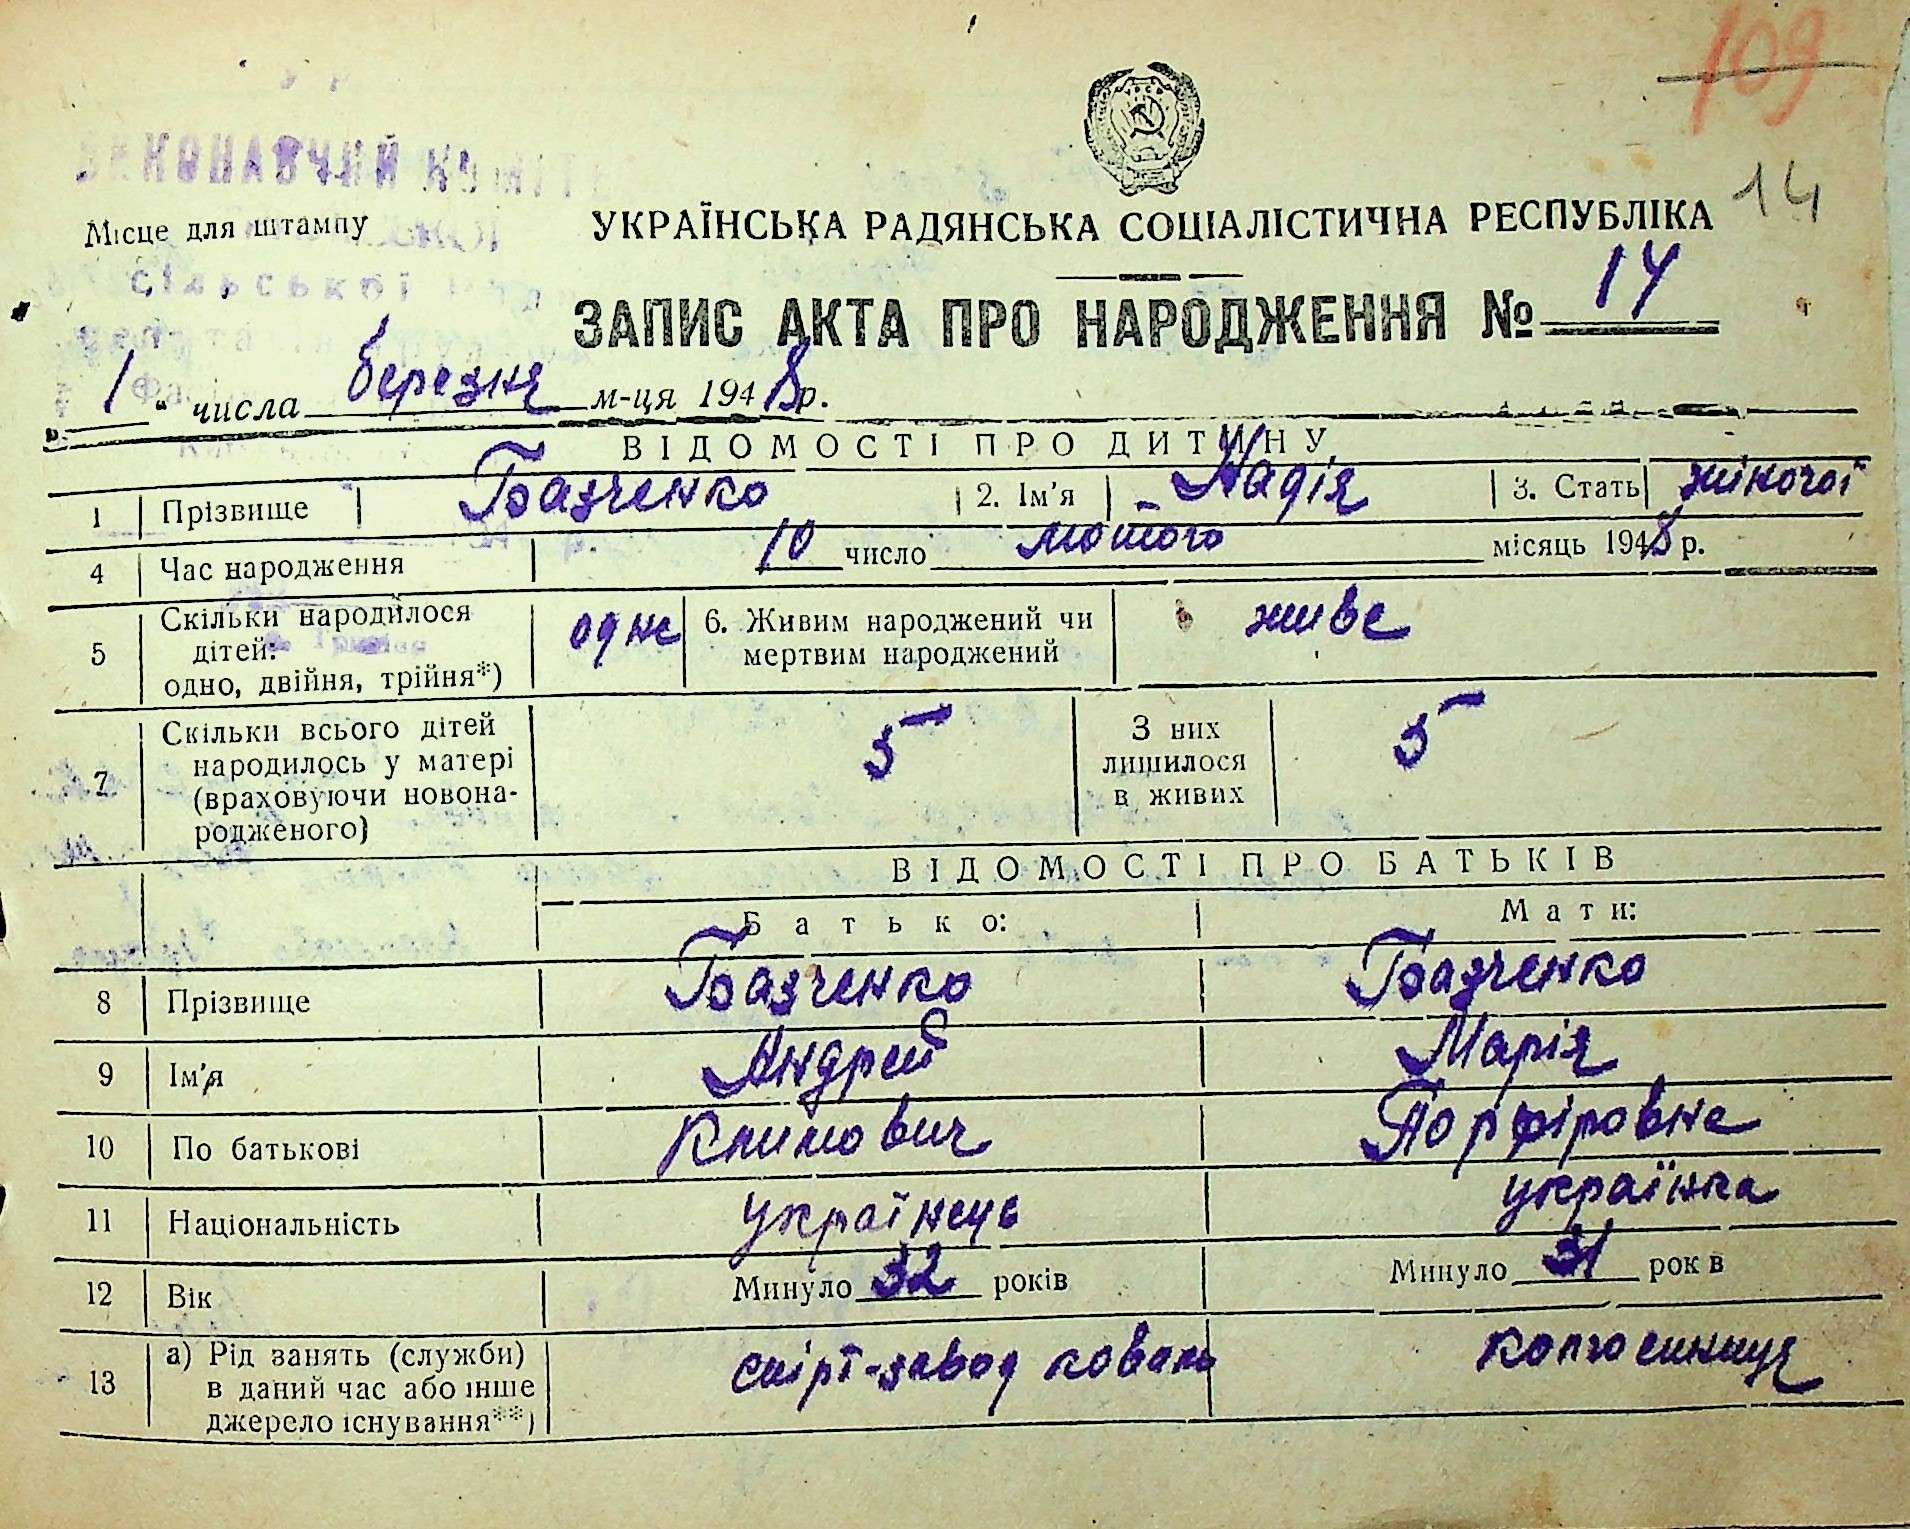 109
14
ВИКОНАВЧИЙ КОМІТЕ
Місце для штампу
УКРАЇНСЬКА РАДЯНСЬКА СОЦІАЛІСТИЧНА РЕСПУБЛІКА
сільської
ЗАПИС АКТА ПРО НАРОДЖЕННЯ № 14
„ 1 “ числа березня м-ця 1948 р.
ВІДОМОСТІ ПРО ДИТИНУ
1 Прізвище Базченко 2. Ім'я Надія 3. Стать жіночої
4 Час народження 10 число лютого місяць 1948 р.
5 Скільки народилося дітей: одно, двійня, трійня*) одне 6. Живим народжений чи мертвим народжений живе
7 Скільки всього дітей народилось у матері (враховуючи новонародженого) 5 З них лишилося в живих 5
ВІДОМОСТІ ПРО БАТЬКІВ
Батько: Мати:
8 Прізвище Базченко Базченко
9 Ім'я Андрей Марія
10 По батькові Климович Порфіровна
11 Національність українець українка
12 Вік Минуло 32 років Минуло 31 рок в
13 а) Рід занять (служби) в даний час або інше джерело існування**) спірт-завод коваль колгосниця